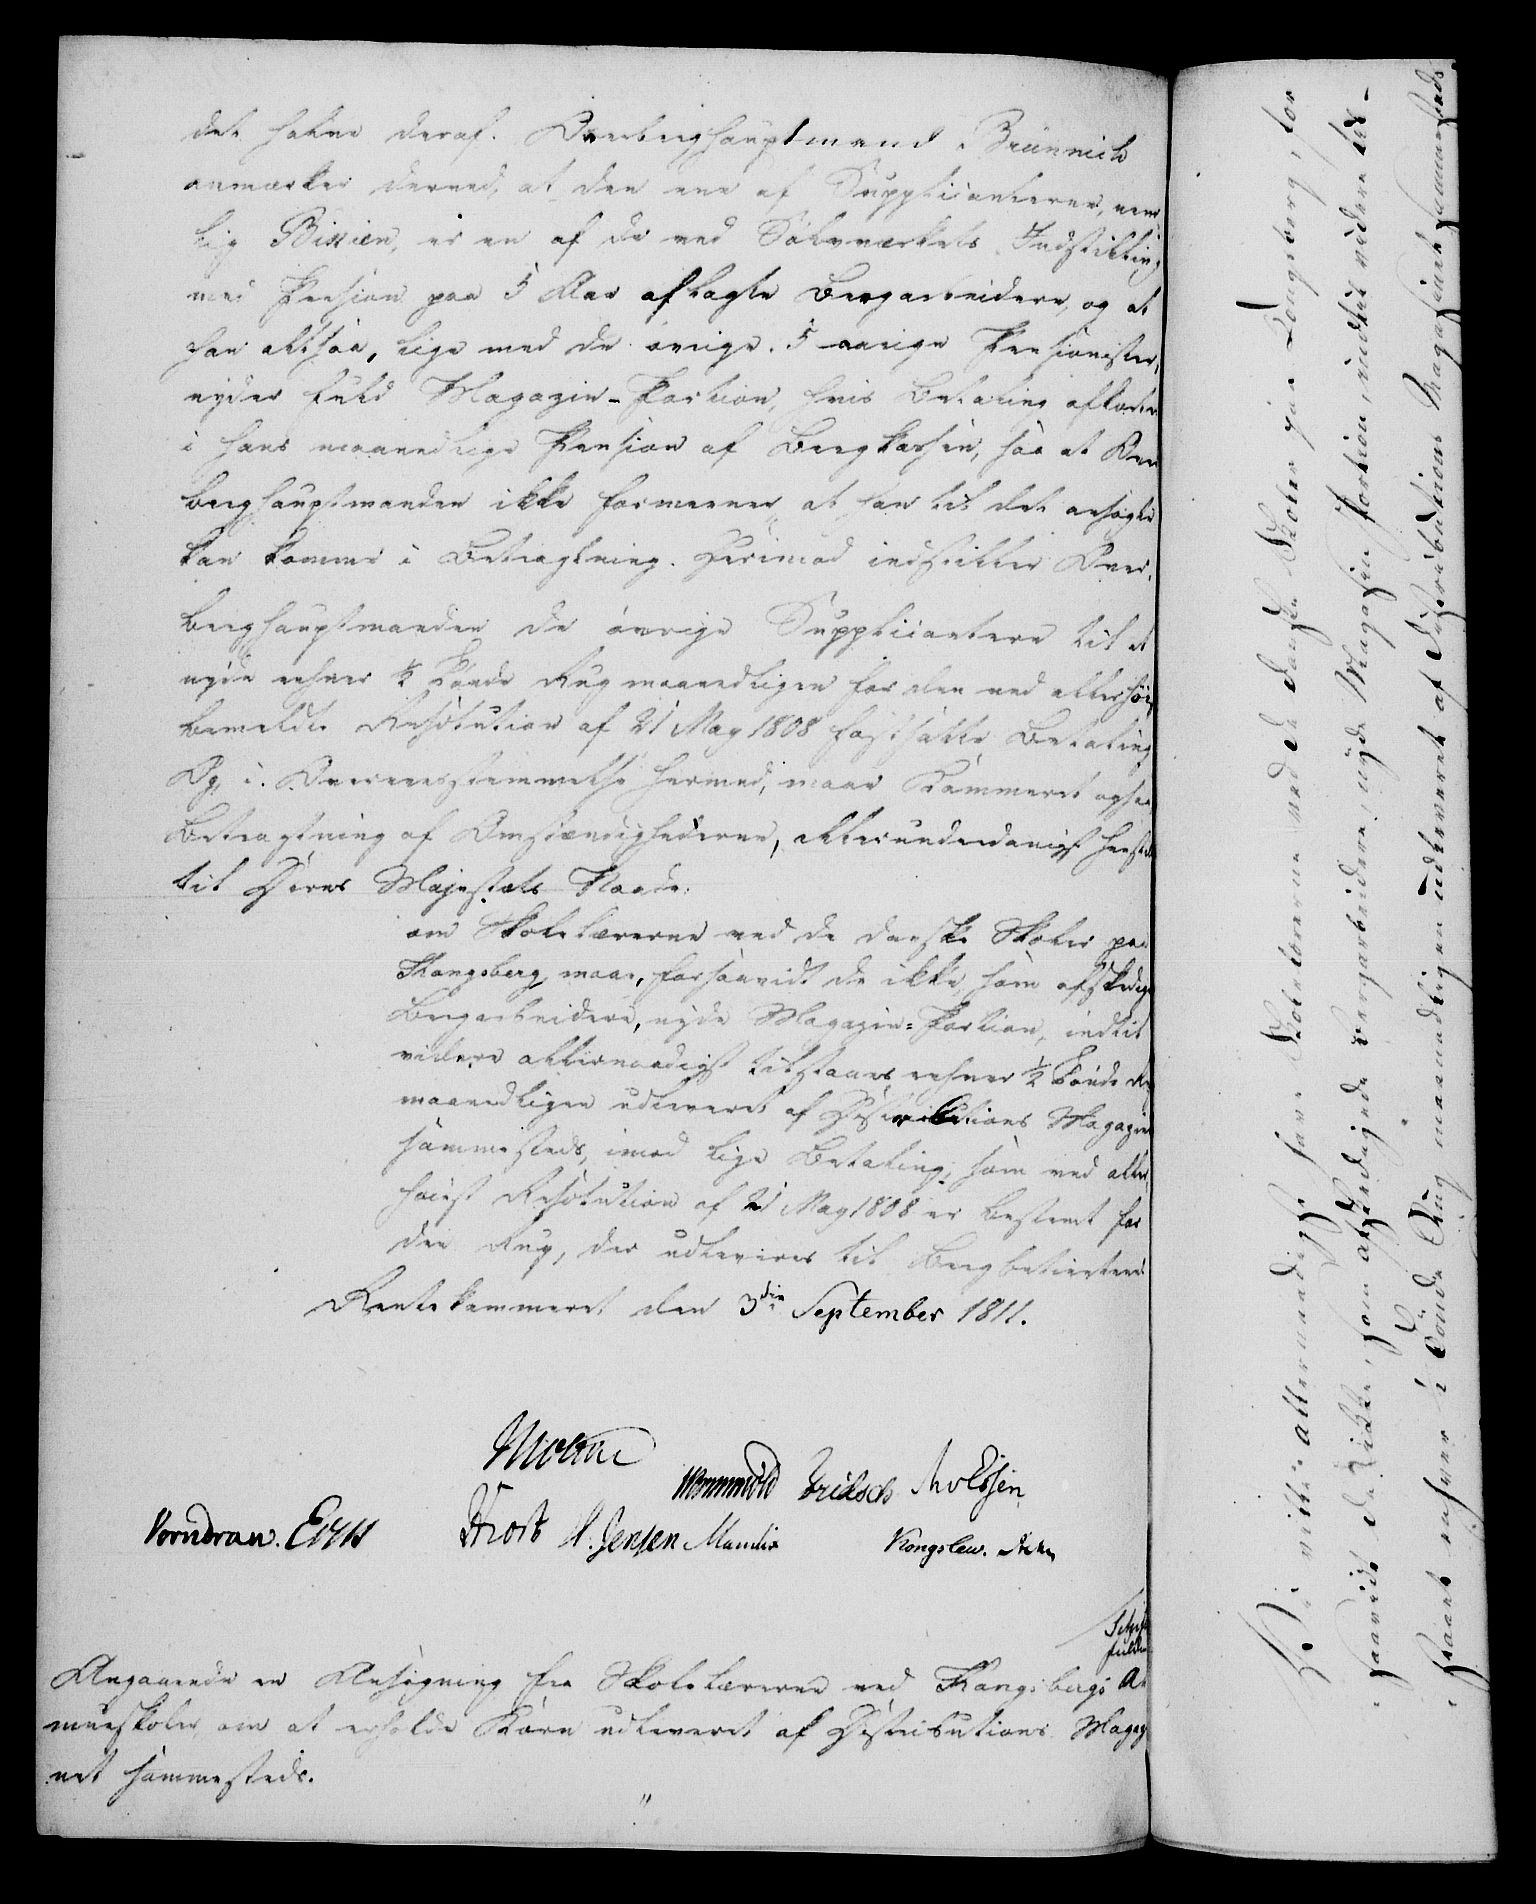 det halve deraf. Overberghauptmand Brünnich
anmærker derved, at den ene af Supplicanterne, nem-
lig Bissien, er en af de ved Sölvværkets Indstilling
med Pension paa 5 Aar aflagte Bergarbeidere, og at
han altsaa, lige med de övrige 5 aarige Pensionister,
nyder fuld Magazin-Portion, hvis Betaling afkortes
i hans maanedlige Pension af Bergkassen, saa at Over
berghauptmanden ikke formener, at han til det ansögte
kan komme i Betragtning. Derimod indstiller Over-
berghauptmanden de övrige Supplicantere til at
nyde enhver ½ Tönde Rug maanedligen for den ved allerhöist
bemeldte Resolution af 21 May 1808 fastsatte Betaling
Og, i Overeensstemmelse hermed, maae Kammeret ogsaa
Betragtning af Omstændighederne, allerunderdanigst henstille
til Deres Majestæts Naade:
om Skolelærerne ved de danske Skoler paa
Kongsberg maae, forsaavidt de ikke, som afskedigede
Bergarbeidere, nyde Magazin-Portion, indtil
videre allernaadigst tilstaaes enhver ½ Tönde Rug
maanedligen udleveret af Distributions Magazinet
sammesteds, imod lige Betaling, som ved aller-
höiest Resolution af 21 May 1808 er bestemt for
den Rug, der udleveres til Bergbetienterne
Rentekammeret den 3die September 1811.
Wormskiold Knoblauch
Vorndran. Frost H. Jensen Mandix Kongslew.
Angaaende en Ansögning fra Skolelærerne ved Kongsbergs Al-
mueskoler om at erholde Korn udleveret af Distributions Magazi
net sammesteds.
Vi ville allernaadigst have Skolelærerne ved de danske Skoler paa Kongsberg, for
saavidt de ikke, som afskedigede Bergarbeidere, nyde Magasin Portion, indtil videre til-
staaet enhver ½ Tönde Rug maanedligen udleveret af Distributions Magasinet sammesteds